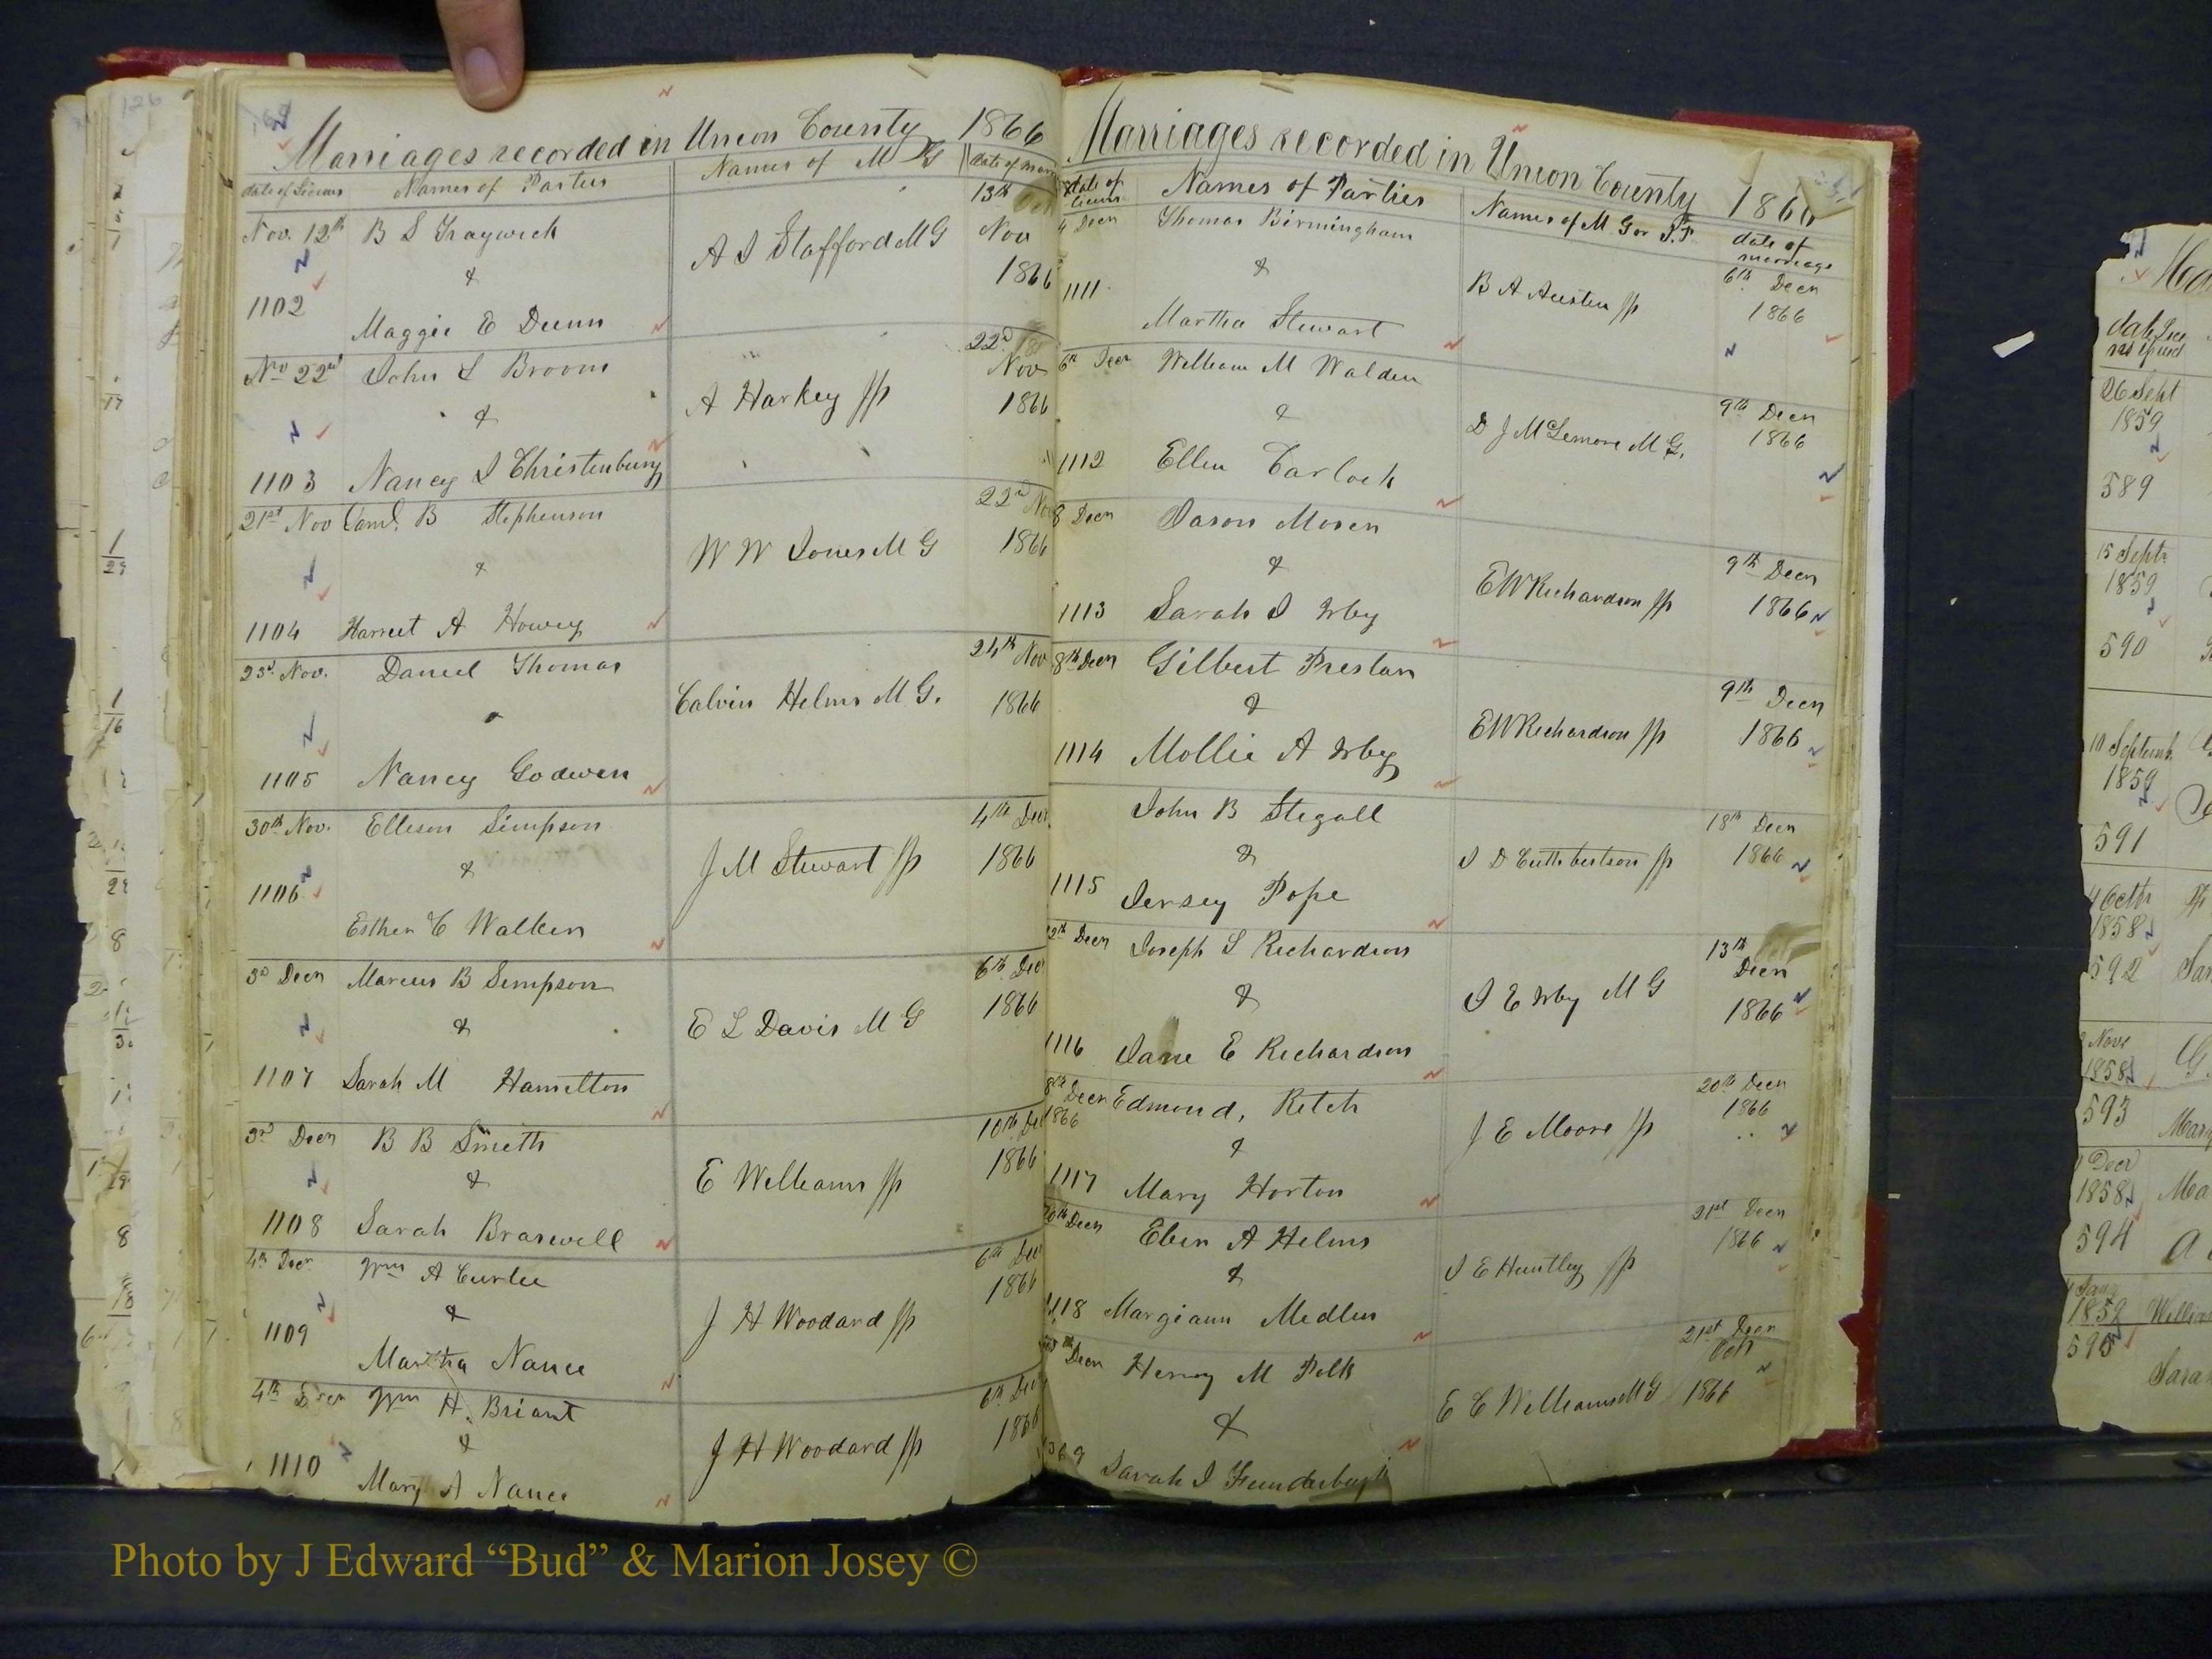 Marriages recorded in Union County 1866
date of Licens Names of Parties Names of M G date of marr
Nov. 12th B S Traywick A J Stafford M G 13th Nov 1866
&
1102 Maggie E Dunn
Nov 22nd John L Broom A Harkey Jp 22d Nov 1866
&
1103 Nancy J Christenbury
21st Nov Saml. B Stephenson W W Jones M G 22nd Nov 1866
&
1104 Harriet A Howey
23d Nov. Daniel Thomas Calvin Helms M G. 24th Nov 1866
1105 Nancy Godwin
30th Nov. Ellison Simpson J M Stewart Jp 4th Decr 1866
&
1106 Esther C Walken
3d Decr Marcus B Simpson E L Davis M G 6th Dec 1866
&
1107 Sarah M Hamilton
3rd Decr B B Smith E Williams Jp 10th Dec 1866
&
1108 Sarah Braswell
4th Decr Wm A Curlee J H Woodard Jp 6th Dec 1866
&
1109 Martha Nance
4th Decr Wm H. Briant J H Woodard Jp 6th Dec 1866
&
1110 Mary A Nance
Marriages recorded in Union County 1866
date of Licens Names of Parties Names of M. G or J.P. date of marriage
4 Decr Thomas Birmingham B A Austin Jp 6th Decr 1866
&
1111 Martha Stewart
6th Decr William M Walden D J McLemore M G. 9th Decr 1866
&
1112 Ellen Carlock
8 Decr Jason Moser E W Richardson Jp 9th Decr 1866
&
1113 Sarah J Irby
8th Decr Gilbert Preslar E W Richardson Jp 9th Decr 1866
&
1114 Mollie A Irby
John B Stegall J D Cuthbertson Jp 18th Decr 1866
&
1115 Jersey Pope
12th Decr Joseph S Richardson J E Irby M G 13th Decr 1866
&
1116 Jane E Richardson
8th Decr 1866 Edmond, Retch J E Moore Jp 20th Decr 1866
&
1117 Mary Horton
20th Decr Eben A Helms J E Huntley Jp 21st Decr 1866
&
1118 Margiann Medlin
Decr Henry M Polk E C Williams M G 21st Decr 1866
&
Sarah J Funderburk
126
date Lice
26 Sept
1859
589
15 Septr
1859
590
10 Septemb.
1859
591
4 Octr
1858
592 Sar
Novr
1858
593 Mary
1 Decr
1858 Ma
594
1859 William
595
Sara
Photo by J Edward “Bud” & Marion Josey ©